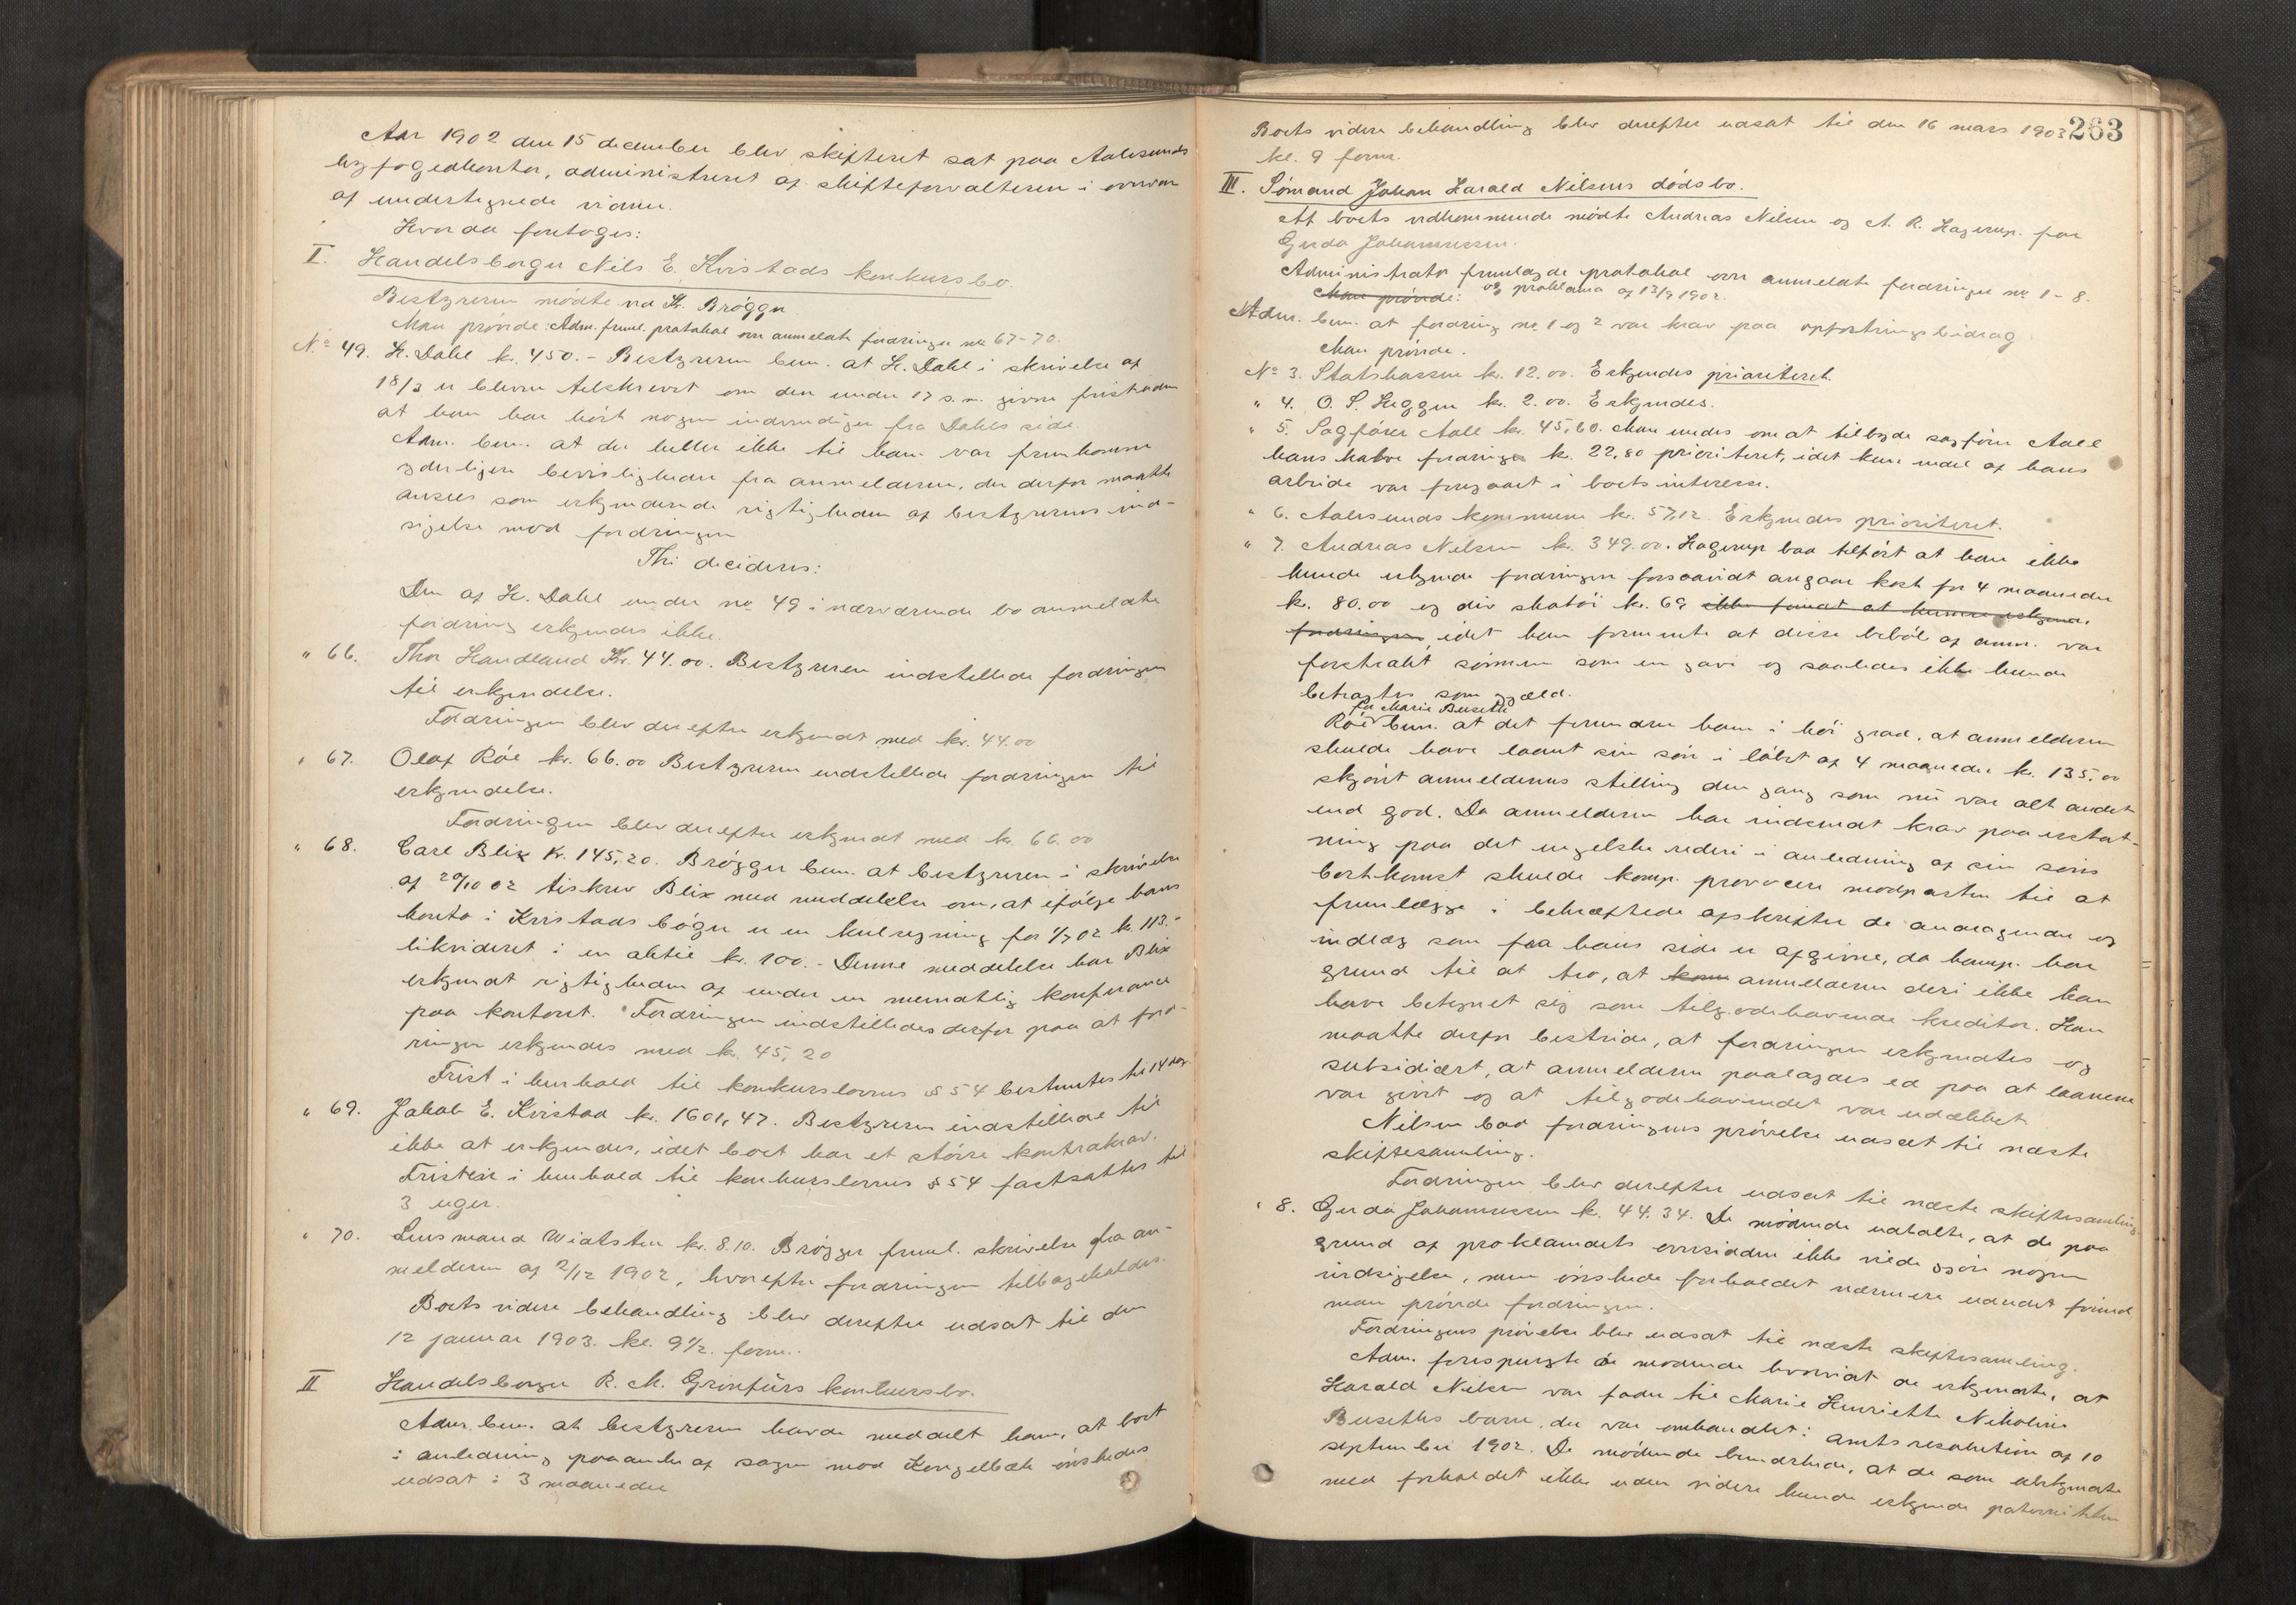 Aar 1902 den 15 december blev skifteret sat paa Aalesunds
byfogedkontor, administreret af skifteforvalteren i overvær
af undertegnede vidner.
Hvorda foretoges:
I. Handelsborger Nils E. Kvistads konkursbo.
Bestyreren mødte ved K. Brøgger
Man prøvde: Adm. freml. protokol over anmeldte fordringer no 67-70.
No 49. H. Dahl kr. 450.- Bestyreren bem. at H. Dahl i skrivelse af
18/3 er bleven tilskrevet om den under 17 s.m. givne frist uden
at han har hørt nogen indvendiger fra Dahls side.
Adm. bem. at der heller ikke til ham var fremkommet
yderligere bevisligheder fra anmelderen, der derfor maatte
ansees som erkjendende rigtigheden af bestyrerens ind-
sigelse mod fordringen
Thi decideres:
Den af H. Dahl under no 49 i nærværende bo anmeldte
fordring erkjendes ikke.
" 66. Thor Handland Kr. 44.00. Bestyreren indstillede fordringen
til erkjendelse.
Fordringen blev derefter erkjendt med kr. 44.00
" 67. Olaf Röe kr. 66.00 Bestyreren indstillede fordringen til
erkjendelse.
Fordringen blev derefter erkjendt med kr. 66.00
" 68. Carl Blix Kr. 145,20. Brøgger bem. at bestyreren i skrivelse
af 29/10 02 tilskrev Blix med meddelelse om, at ifølge hans
konto i Kvistads bøger er en kulregning for 1/7 02 kr. 113.-
likvideret i en aktie kr. 100.- Denne meddelelse har Blix
erkjendt rigtigheden af under en mundtlig konferance
paa kontoret. Fordringen indstilledes derfor paa at ford-
ringen erkjendes med kr. 45,20
Frist i henhold til konkurslovens § 54 bestemtes til 14 dag
" 69. Jakob E. Kvistad kr. 1601,47. Bestyreren indstillede til
ikke at erkjendes, idet boet har et større kontrakrav.
Fristen i henhold til konkurslovens § 54 fastsattes til
3 uger.
" 70. Lensmand Wiatsten kr. 8.10. Brøgger freml. skrivelse fra an-
melderen af 2/12 1902, hvorefter fordringen tilbageholdes.
Boets videre behandling blev derefter udsat til den
12 januar 1903. kl. 9 1/2. form.
II Handelsborger R. M. Grönfürs konkursbo.
Adm. bem. at bestyreren havde meddelt ham, at boet
i anledning paaanke af sagen mod Kongelbæk ønskedes
udsat i 3 maaneder
Boets videre behandling blev derefter udsat til den 16 mars 1903
263
kl. 9 form.
III. Sømand Johan Harald Nilsens dødsbo.
Af boets vedkommende mødte Andreas Nilsen og A. R. Hagerup for
Gerda Johannessen.
Administrator fremlagde protokol over anmeldte fordringer no 1-8.
Man prøvde: og proklama af 13/9 1902.
Adm. bem. at fordring no 1 og 2 var krav paa opfostringsbidrag
Man prøvde.
No 3. Statskassen kr. 12.00. Erkjendes prioriteret.
" 4. O. S. Heggen kr. 2.00. Erkjendes.
" 5. Sagfører Aall kr. 45,60. Man enedes om at tilbyde sagfører Aall
hans halve fordring kr. 22,80 prioriteret, idet kun endel af hans
arbeide var foregaaet i boets interesse.
" 6. Aalesunds kommune kr. 57,12. Erkjendes prioriteret.
" 7. Andreas Nilsen kr. 349.00. Hagerup bad tilført at han ikke
kunde erkjende fordringen forsaavidt angaar kost for 4 maaneder
kr. 80.00 og div skotøi kr. 69 ikke fandt at kunne erkjende
fordringen, idet han formente at disse beløb af anm. var
forstrakt sønnen som en gave og saaledes ikke kunde
betragtes som gjæld.
for Marie Buseth
Röe bem. at det forundrer ham i høi grad, at anmelderen
skulde have laant sin søn i løbet af 4 maaneder kr. 135.00
skjønt anmelderens stilling den gang som nu var alt andet
end god. Da anmelderen har indsendt krav paa erstat-
ning paa det engelske rederi i anledning af sin søns
bortkomst skulde komp. provocere modparten til at
fremlægge i bekræftede afskrifter de andragender og
indlæg som fra hans side er afgivne, da komp. har
grund til at tro, at kom anmelderen deri ikke kan
have betegnet sig som tilgodehavende kreditor. Han
maatte derfor bestride, at fordringen erkjendtes og
subsidiært, at anmelderen paalagdes ed paa at laanene
var givet og at tilgodehavendet var udækket.
Nilsen bad fordringens prøvelse udsat til næste
skiftesamling.
Fordringen blev derefter udsat til næste skiftesamling
" 8. Gerda Johannessen kr. 44.34. De mødende udtalte, at de paa
grund af proklamaets oversidden ikke vilde gjøre nogen
indsigelse, men ønskede forholdet nærmere udredet forinden
man prøvde fordringen.
Fordringens prøvelse blev udsat til næste skiftesamling.
Adm. forespurgte de mødende hvorvidt de erkjendte, at
Harald Nilsen var fader til Marie Henriette Nikoline
Buseths barn, der var omhandlet i amtsresolution af 10
september 1902. De mødende bemærkede, at de som ubekjendte
med forholdet ikke uden videre kunde erkjende paterniteten